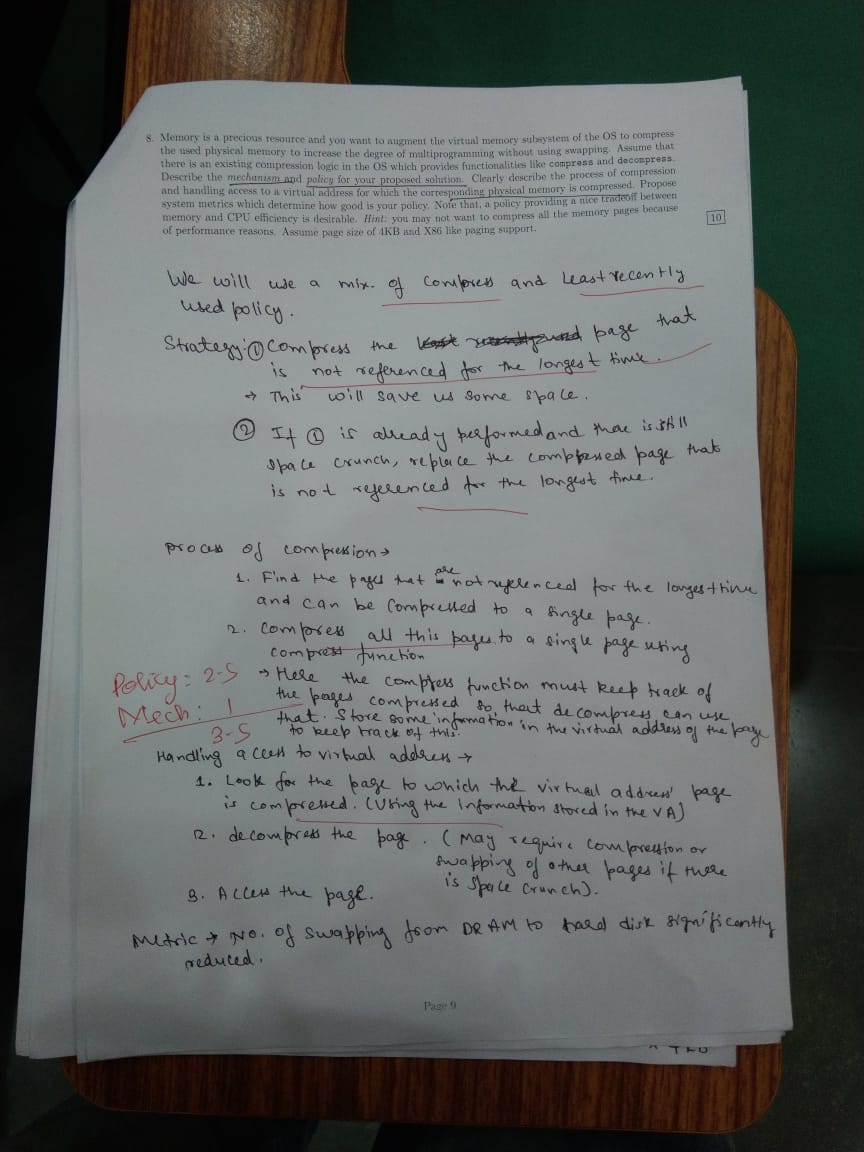 8. Memory is a precious resource and you want to augment the virtual memory subsystem of the OS to compress
the used physical memory to increase the degree of multiprogramming without using swapping. Assume that
there is an existing compression logic in the OS which provides functionalities like compress and decompress.
Describe the mechanism and policy for your proposed solution. Clearly describe the process of compression
and handling access to a virtual address for which the corresponding physical memory is compressed. Propose
system metrics which determine how good is your policy. Note that, a policy providing a nice tradeoff between
memory and CPU efficiency is desirable. Hint: you may not want to compress all the memory pages because
of performance reasons. Assume page size of 4KB and X86 like paging support.
10
We will use a mix of compress and least recently
used policy.
Strategy: ① Compress the page that
is not referenced for the longest time.
→ This will save us some space.
② If ① is already performed and there is still
space crunch, replace the compressed page that
is not referenced for the longest time.
process of compression →
1. Find the pages that are not referenced for the longest time
and can be compressed to a single page.
2. Compress all this pages to a single page using
compress function
→ Here the compress function must keep track of
the pages compressed so, that decompress can use
that. Store some information in the virtual address of the page
to keep track of this.
Policy: 2.5
Mech: 1
3.5
Handling access to virtual address →
1. Look for the page to which the virtual address page
is compressed. (Using the information stored in the VA)
2. decompress the page. (May require compression or
swapping of other pages if there
is space crunch).
3. Access the page.
Metric → No. of swapping from DRAM to hard disk significantly
reduced.
Page 9